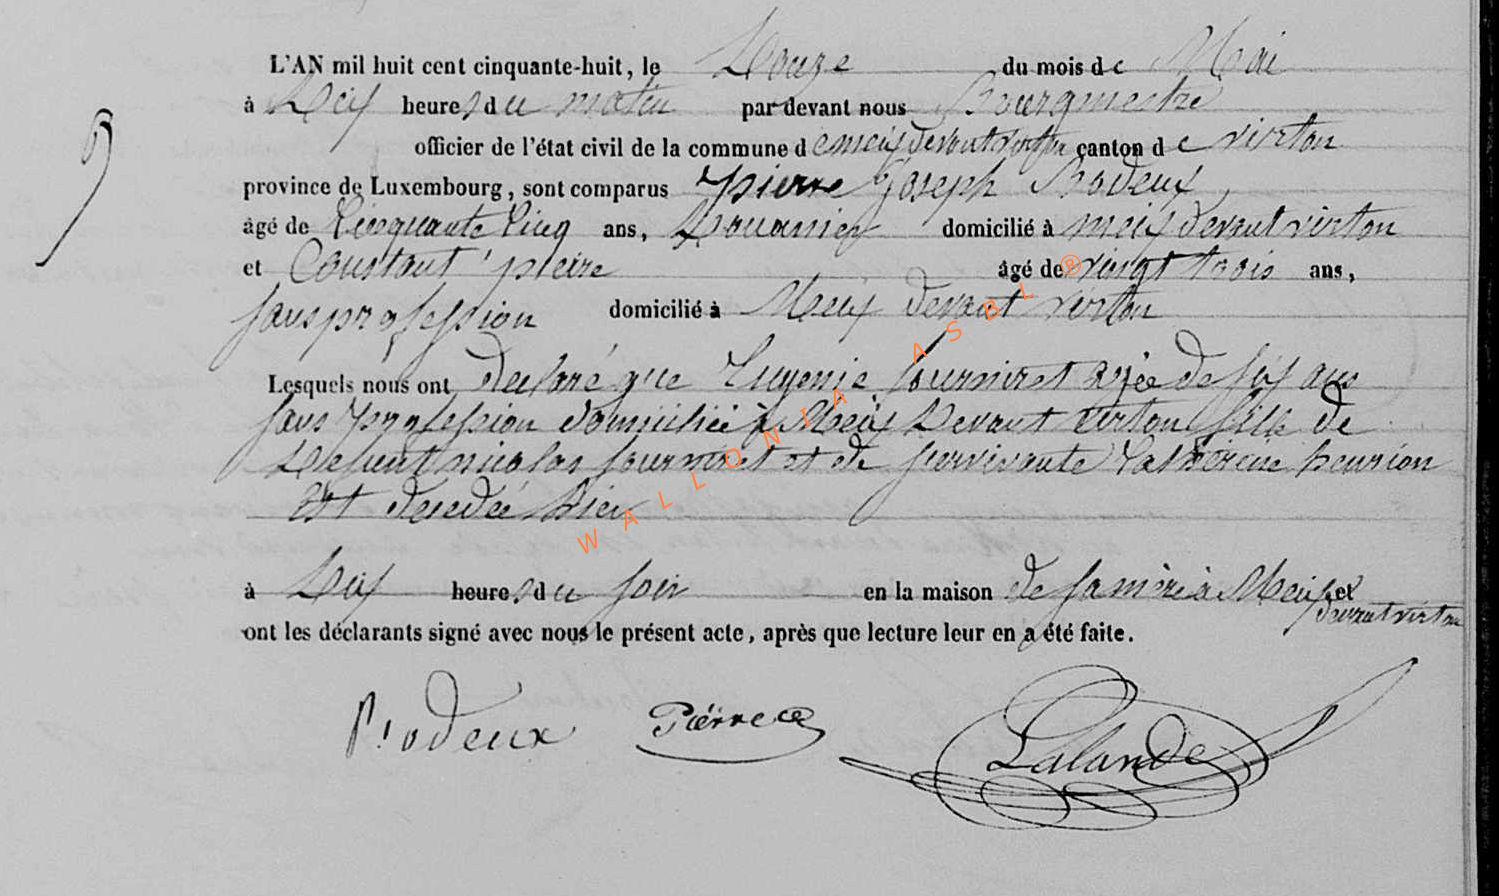 9
L'AN mil huit cent cinquante-huit, le Douze du mois de Mai
à Dix heures du matin par devant nous Bourgmestre
officier de l'état civil de la commune de meix devant virton canton de virton
province de Luxembourg, sont comparus pierre Joseph Rodeux,
âgé de Cinquante Cinq ans, Douanier domicilié à meix devant virton
et Constant pierre âgé de vingt trois ans,
sans profession domicilié à Meix devant virton
Lesquels nous ont declaré que Eugenie fourniret agée de six ans
sans profession domiciliée à Meix Devant virton fille de
Defunt nicolas fourniret et de survivante Catherine henrion
Est decedée hier
à Dix heures du soir en la maison de sa mère à Meix devant virton et
ont les déclarants signé avec nous le présent acte, après que lecture leur en a été faite.
Rodeux Piérre C Lalande
WALLONIA ASBL ®